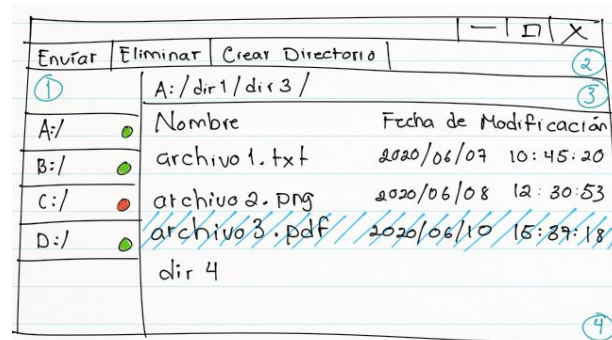 Enviar Eliminar Crear Directorio
2
1
A:/dir1/dir3/
3
A:/
B:/
C:/
D:/
Nombre Fecha de Modificación
archivo1.txt 2020/06/07 10:45:20
archivo2.png 2020/06/08 12:30:53
archivo3.pdf 2020/06/10 15:39:18
dir 4
4